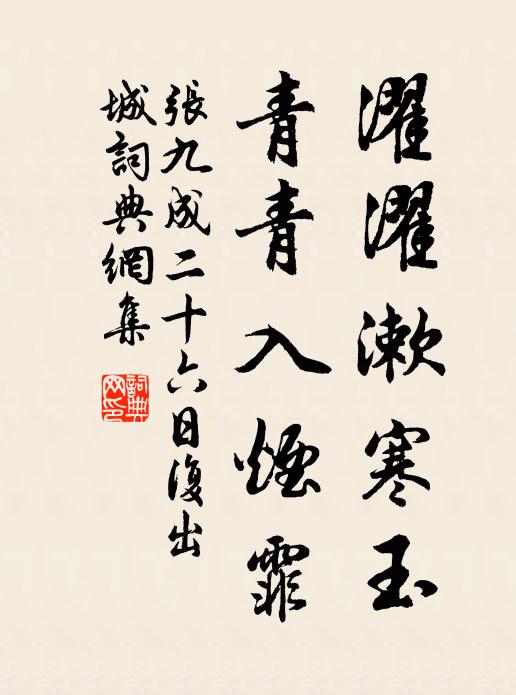 濯濯漱寒玉
青青入煙霏
張九成二十六日復出
城詞典網集
詞典网印